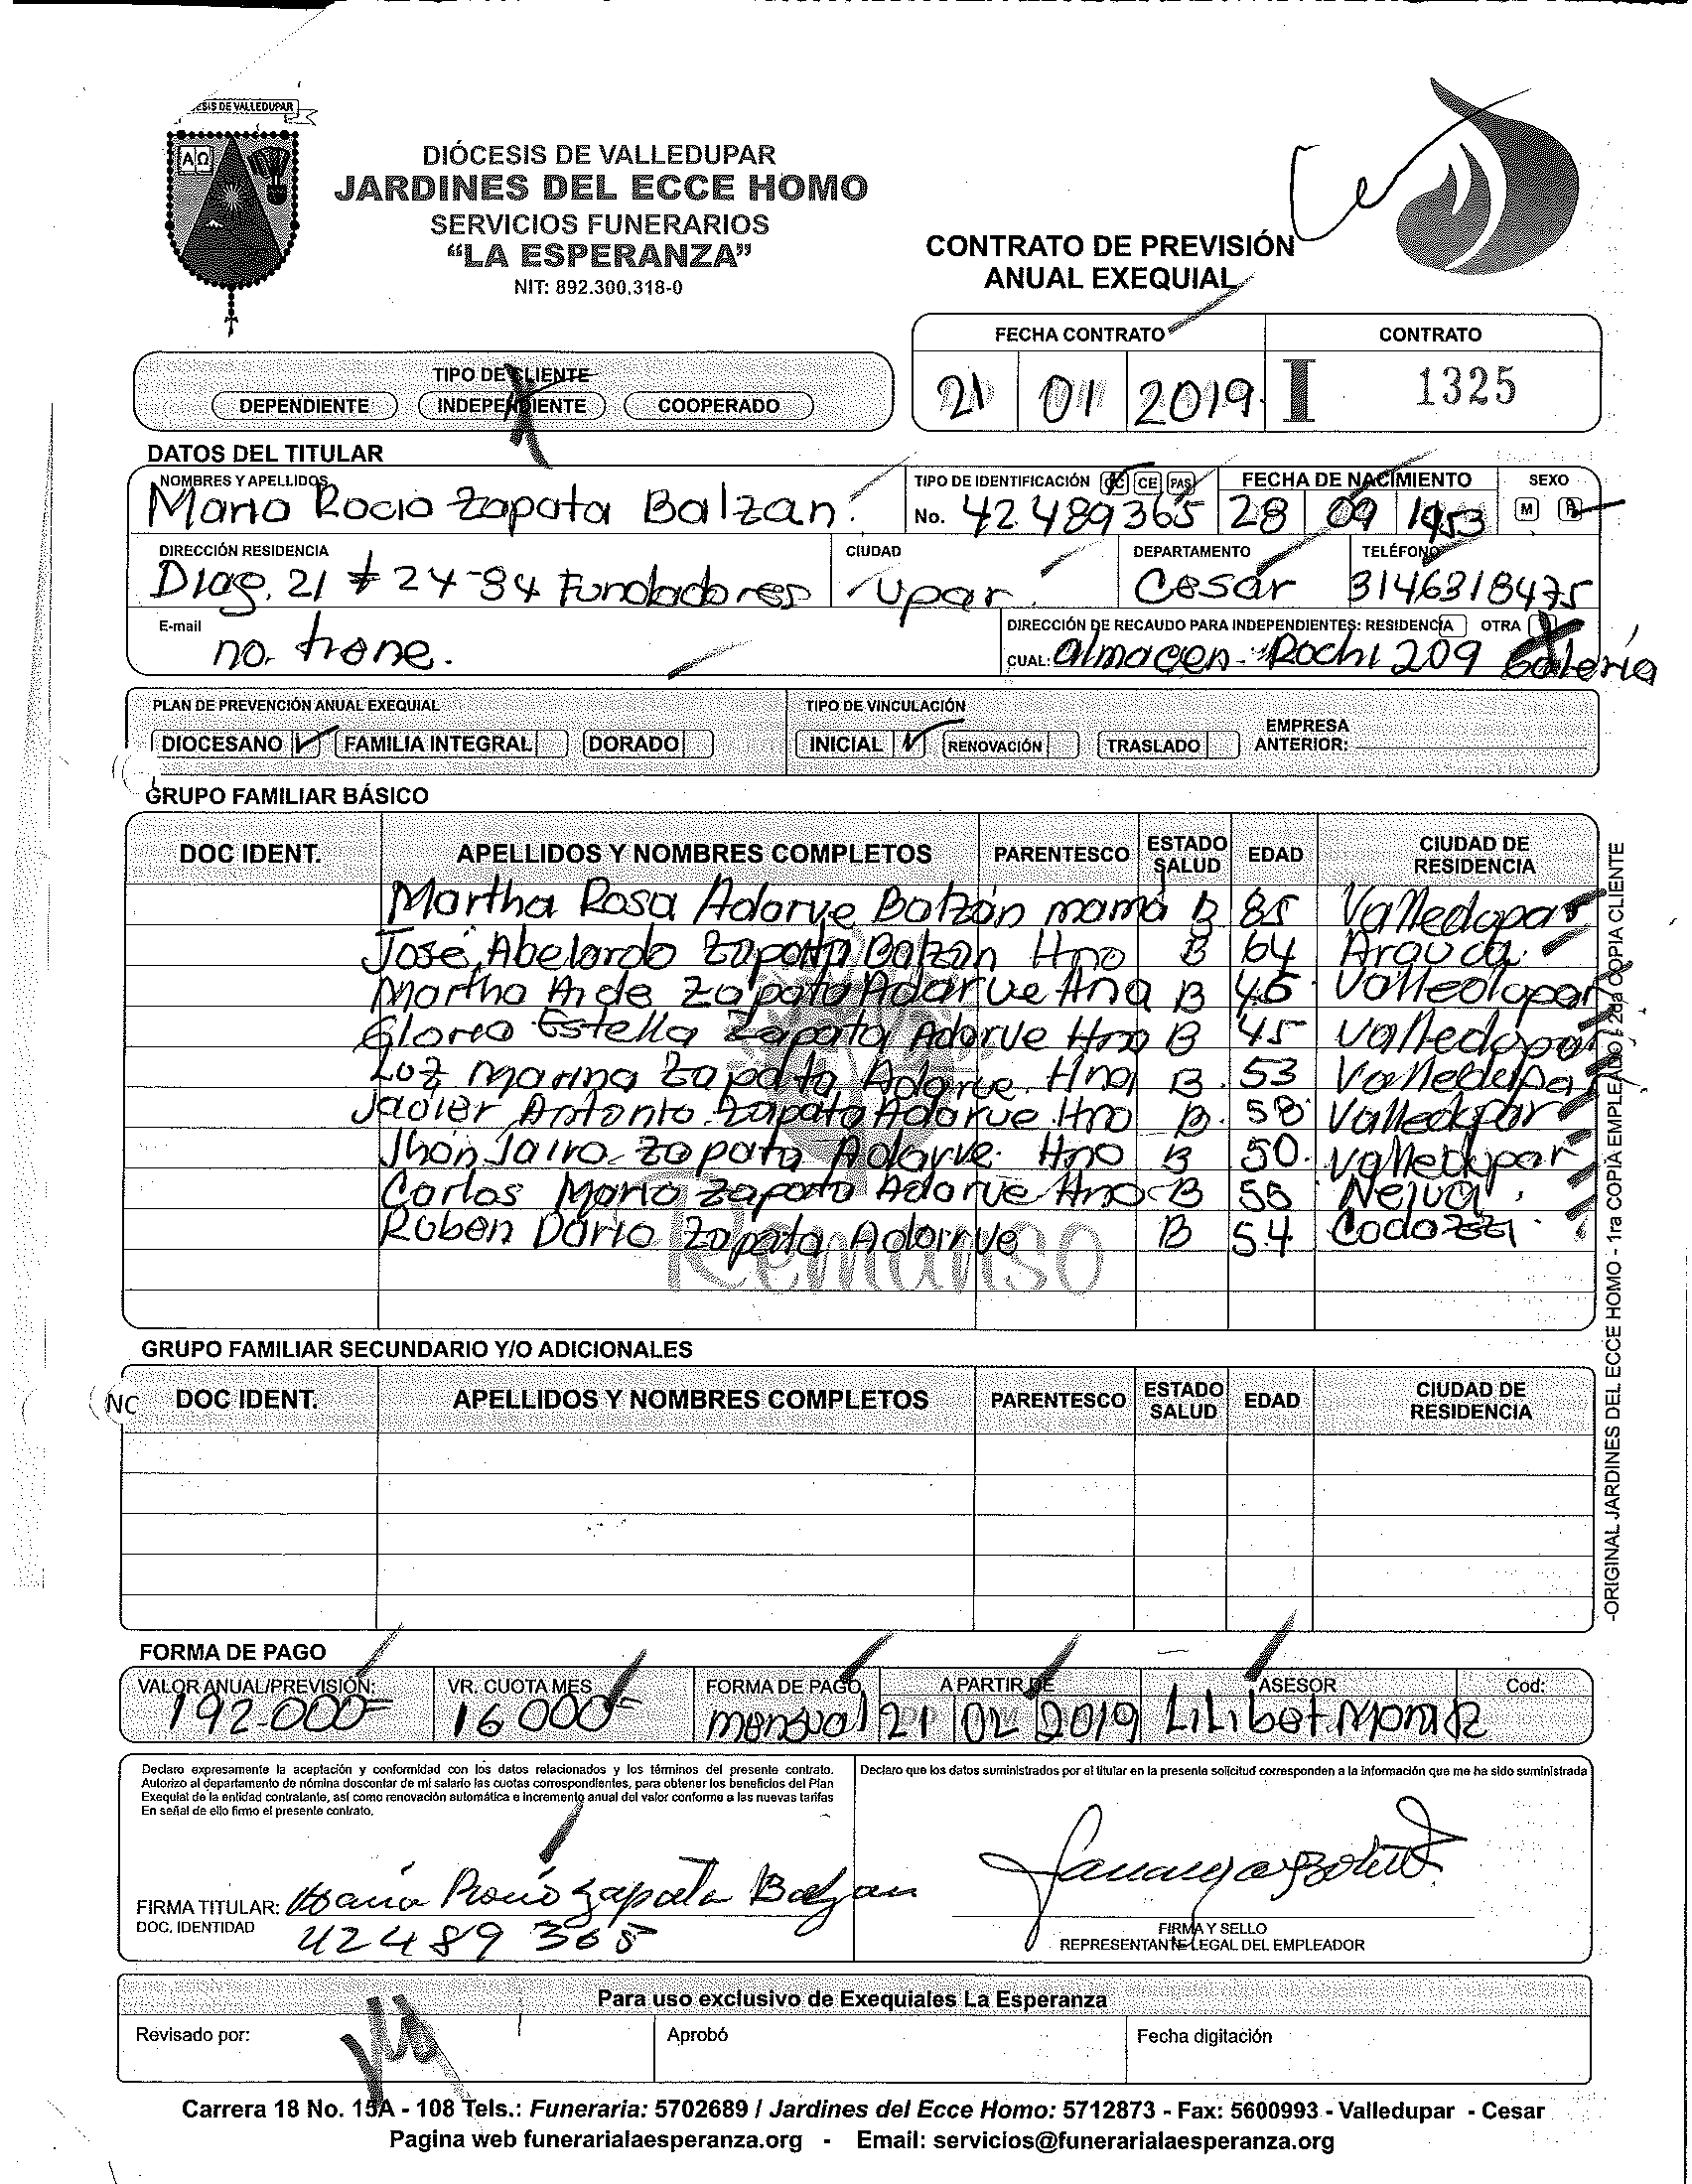 DIÓCESIS DE VALLEDUPAR
JARDINES DEL ECCE HOMO
SERVICIOS FUNERARIOS
“LA ESPERANZA”
NIT: 892.300.318-0
CONTRATO DE PREVISIÓN
ANUAL EXEQUIAL
FECHA CONTRATO CONTRATO
21 01 2019 I 1325
TIPO DE CLIENTE
DEPENDIENTE INDEPENDIENTE COOPERADO
DATOS DEL TITULAR
NOMBRES Y APELLIDOS TIPO DE IDENTIFICACIÓN CC CE PAS FECHA DE NACIMIENTO SEXO
Maria Rocio Zapata Balzan No. 42489365 28 09 1953 M F
DIRECCIÓN RESIDENCIA CIUDAD DEPARTAMENTO TELÉFONO
Diag. 21 # 24-84 Fundadores Vupar Cesar 3146318475
E-mail DIRECCIÓN DE RECAUDO PARA INDEPENDIENTES: RESIDENCIA OTRA
no. tiene. CUAL: almacen Rochi 209 Galeria
PLAN DE PREVENCIÓN ANUAL EXEQUIAL TIPO DE VINCULACIÓN
DIOCESANO FAMILIA INTEGRAL DORADO INICIAL RENOVACIÓN TRASLADO EMPRESA ANTERIOR:
GRUPO FAMILIAR BÁSICO
DOC IDENT. APELLIDOS Y NOMBRES COMPLETOS PARENTESCO ESTADO SALUD EDAD CIUDAD DE RESIDENCIA
Martha Rosa Adarve Balzán mamá B 85 Valledupar
José Abelardo Zapata Balzan Hno B 64 Arauca
Martha Aide Zapata Adarve Hna B 46 Valledupar
Gloria Estella Zapata Adarve Hna B 45 Valledupar
Luz Marina Zapata Adarve Hna B. 53 Valledupar
Javier Antonio Zapata Adarve Hno B. 58 Valledupar
Jhon Jairo Zapata Adarve. Hno B 50. Valledupar
Carlos Mario Zapata Adarve Hno B 55 Neiva
Ruben Dario Zapata Adarve B 54 Codazzi
Remanso
GRUPO FAMILIAR SECUNDARIO Y/O ADICIONALES
NC DOC IDENT. APELLIDOS Y NOMBRES COMPLETOS PARENTESCO ESTADO SALUD EDAD CIUDAD DE RESIDENCIA
-ORIGINAL JARDINES DEL ECCE HOMO - 1ra COPIA EMPLEADO / 2da COPIA CLIENTE
FORMA DE PAGO
VALOR ANUAL/PREVISIÓN: VR. CUOTA MES FORMA DE PAGO A PARTIR DE ASESOR Cod:
192.000= 16000= mensual 21 02 2019 Lilibet
Declaro expresamente la aceptación y conformidad con los datos relacionados y los términos del presente contrato.
Autorizo al departamento de nómina descontar de mi salario las cuotas correspondientes, para obtener los beneficios del Plan
Exequial de la entidad contratante, así como renovación automática e incremento anual del valor conforme a las nuevas tarifas
En señal de ello firmo el presente contrato.
Declaro que los datos suministrados por el titular en la presente solicitud corresponden a la información que me ha sido suministrada
FIRMA TITULAR: Maria Rocio Zapata Balzan
DOC. IDENTIDAD 42489365
FIRMA Y SELLO
REPRESENTANTE LEGAL DEL EMPLEADOR
Para uso exclusivo de Exequiales La Esperanza
Revisado por: Aprobó Fecha digitación
Carrera 18 No. 15A - 108 Tels.: Funeraria: 5702689 / Jardines del Ecce Homo: 5712873 - Fax: 5600993 - Valledupar - Cesar
Pagina web funerarialaesperanza.org - Email: servicios@funerarialaesperanza.org